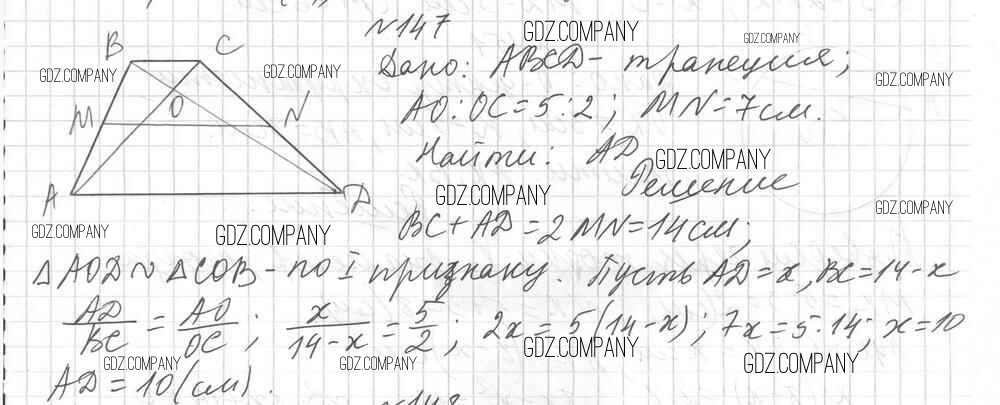 N147
GDZ.COMPANY
GDZ.COMPANY
B C
Дано: ABCD - трапеция;
GDZ.COMPANY
GDZ.COMPANY
GDZ.COMPANY
M O N
AO:OC=5:2; MN=7см.
Найти: AD
GDZ.COMPANY
Решение
A D
GDZ.COMPANY
GDZ.COMPANY
GDZ.COMPANY
GDZ.COMPANY
BC+AD=2MN=14см;
△AOD~△COB - по I признаку. Пусть AD=x, BC=14-x
AD/BC = AO/OC; x/(14-x) = 5/2; 2x=5(14-x); 7x=5·14; x=10
GDZ.COMPANY
GDZ.COMPANY
GDZ.COMPANY
GDZ.COMPANY
AD=10(см).
N148